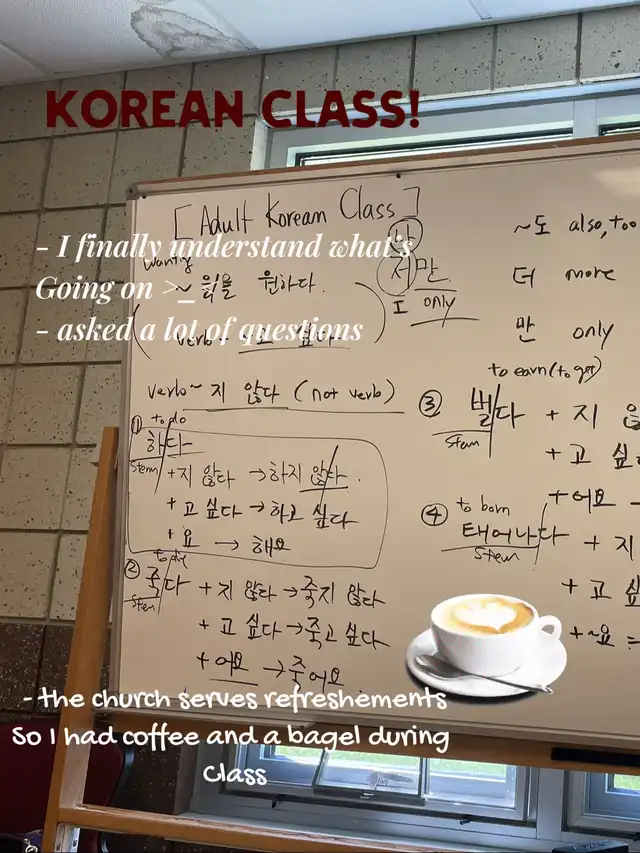 KOREAN CLASS!
- I finally understand what's
Going on >_<
- asked a lot of questions
[Adult Korean Class]
wanting
~ 읽을 원하다.
verb~ 고 싶다
만
저만.
I only
~도 also, too
더 more
만 only
verb~ 지 않다 (not verb)
① to do
하다
Stem
+지 않다 →하지 않다.
+고 싶다→하고 싶다
+요 → 해요
② to die
죽다
Stem
+지 않다→죽지 않다
+고 싶다→죽고 싶다
+어요 →죽어요
to earn (to get)
③ 벌다 + 지 않
Stem
+ 고 싶
+어요
④ to born
태어나다
Stem
+ 지
+ 고 싶
+~요 =
- the church serves refreshements
So I had coffee and a bagel during
Class